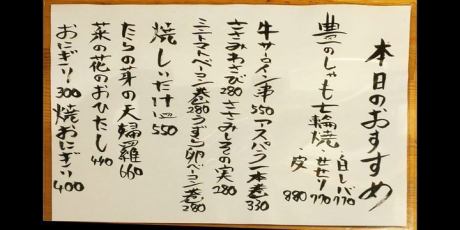 本日のおすすめ
豊のしゃも七輪焼
白レバ770
せせり770
皮880
牛サーロイン串550 アスパラ一本巻330
ささみわさび280 ささみしその実280
ミニトマトベーコン巻280 うずら卵ベーコン巻280
焼しいたけ 550
たらの芽の天婦羅660
菜の花のおひたし440
おにぎり300 焼おにぎり400